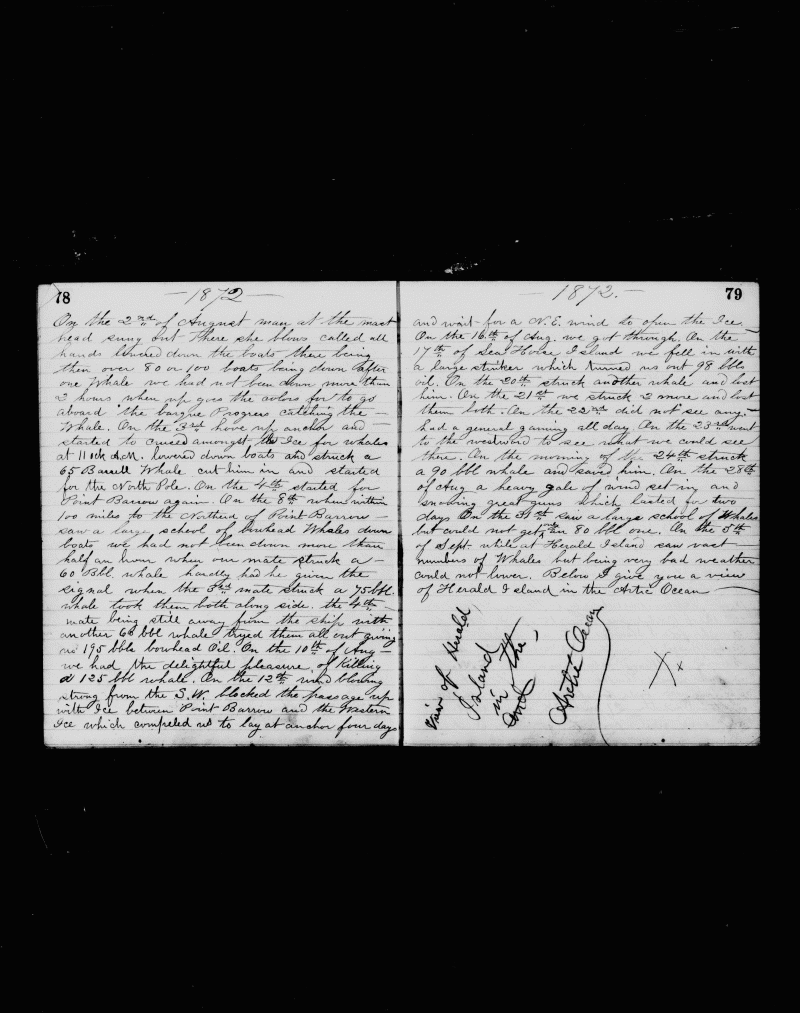 78
— 1872 —
On the 2nd of August man at the mast
head sung out There she blows called all
hands lowered down the boats there being
then over 80 or 100 boats being down after
one Whale we had not been down more than
2 hours when up goes the colors for to go
aboard the barque Progress catching the —
Whale. On the 3rd hove up anchor and —
started to cruised amongst the Ice for whales
at 11 ock A.M. lowered down boats and struck a
65 Barrell Whale cut him in and started
for the North Pole. On the 4th started for
Point Barrow again. On the 8th when within
100 miles to the Northerd of Point Barrow —
saw a large school of bowhead Whales down
boats we had not been down more than
half an hour when our mate struck a —
60 Bbl. whale hardly had he given the
signal when the 3rd mate struck a 75 bbl.
whale took them both along side. the 4th
mate being still away from the ship with
another 60 bbl whale tryed them all out giving
us 195 bbls bowhead Oil. On the 10th of Aug —
we had the delightful pleasure of killing
a 125 bbl whale. On the 12th wind blowing
strong from the S.W. blocked the passage up
with Ice between Point Barrow and the Western
Ice which compeled us to lay at anchor four days
79
— 1872. —
and wait for a N.E. wind to open the Ice —
On the 16th of Aug. we got through. On the
17th of Sea Horse Island we fell in with
a large stinker which turned us out 98 bbls
oil. On the 20th struck another whale and lost
him. On the 21st we struck 2 more and lost
them both. On the 22nd did not see any.
had a general gaming all day. On the 23rd went
to the westward to see what we could see
there. On the morning of the 24th struck
a 90 bbl whale and saved him. On the 28th
of Aug a heavy gale of wind set in and
snowing great guns which lasted for two
days On the 31st saw a large school of Whales
but could not get an 80 bbl one. On the 5th
of Sept. while at Herald Island saw vast
numbers of Whales but being very bad weather
could not lower. Below I give you a view
of Herald Island in the Artic Ocean —
View of Herald
Island
in the
Arctic Ocean